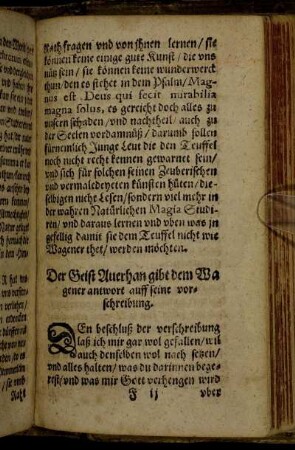 Rath fragen vnd von jhnen lernen/ sie
können keine einige gute Kunst/ die vns
nütz sein/ sie können keine wunderwerck
thun/ den es stehet in dem Psalm/ Mag-
nus est Deus qui fecit mirabilia
magna solus, es gereicht doch alles zu
vnsern schaden/ vnd nachtheil/ auch zu
der Seelen verdamnüß/ darumb sollen
fürnemlich Junge Leut die den Teuffel
noch nicht recht kennen gewarnet sein/
vnd sich für solchen seinen Zeuberischen
vnd vermaledeyeten künsten hüten/ die-
selbigen nicht Lesen/ sondern viel mehr in
der wahren Natürlichen Magia Studi-
ren/ vnd daraus lernen vnd vben was jn
gefellig damit sie dem Teuffel nicht wie
Wagener thet/ werden möchten.
Der Geist Auerhan gibt dem Wa
gener antwort auff seine vor-
schreibung.
DEn beschluß der verschreibung
laß ich mir gar wol gefallen/ wil
auch denselben wol nach setzen/
vnd alles halten/ was du darinnen bege-
rest/ vnd was mir Gott verhengen wird
F ij vber